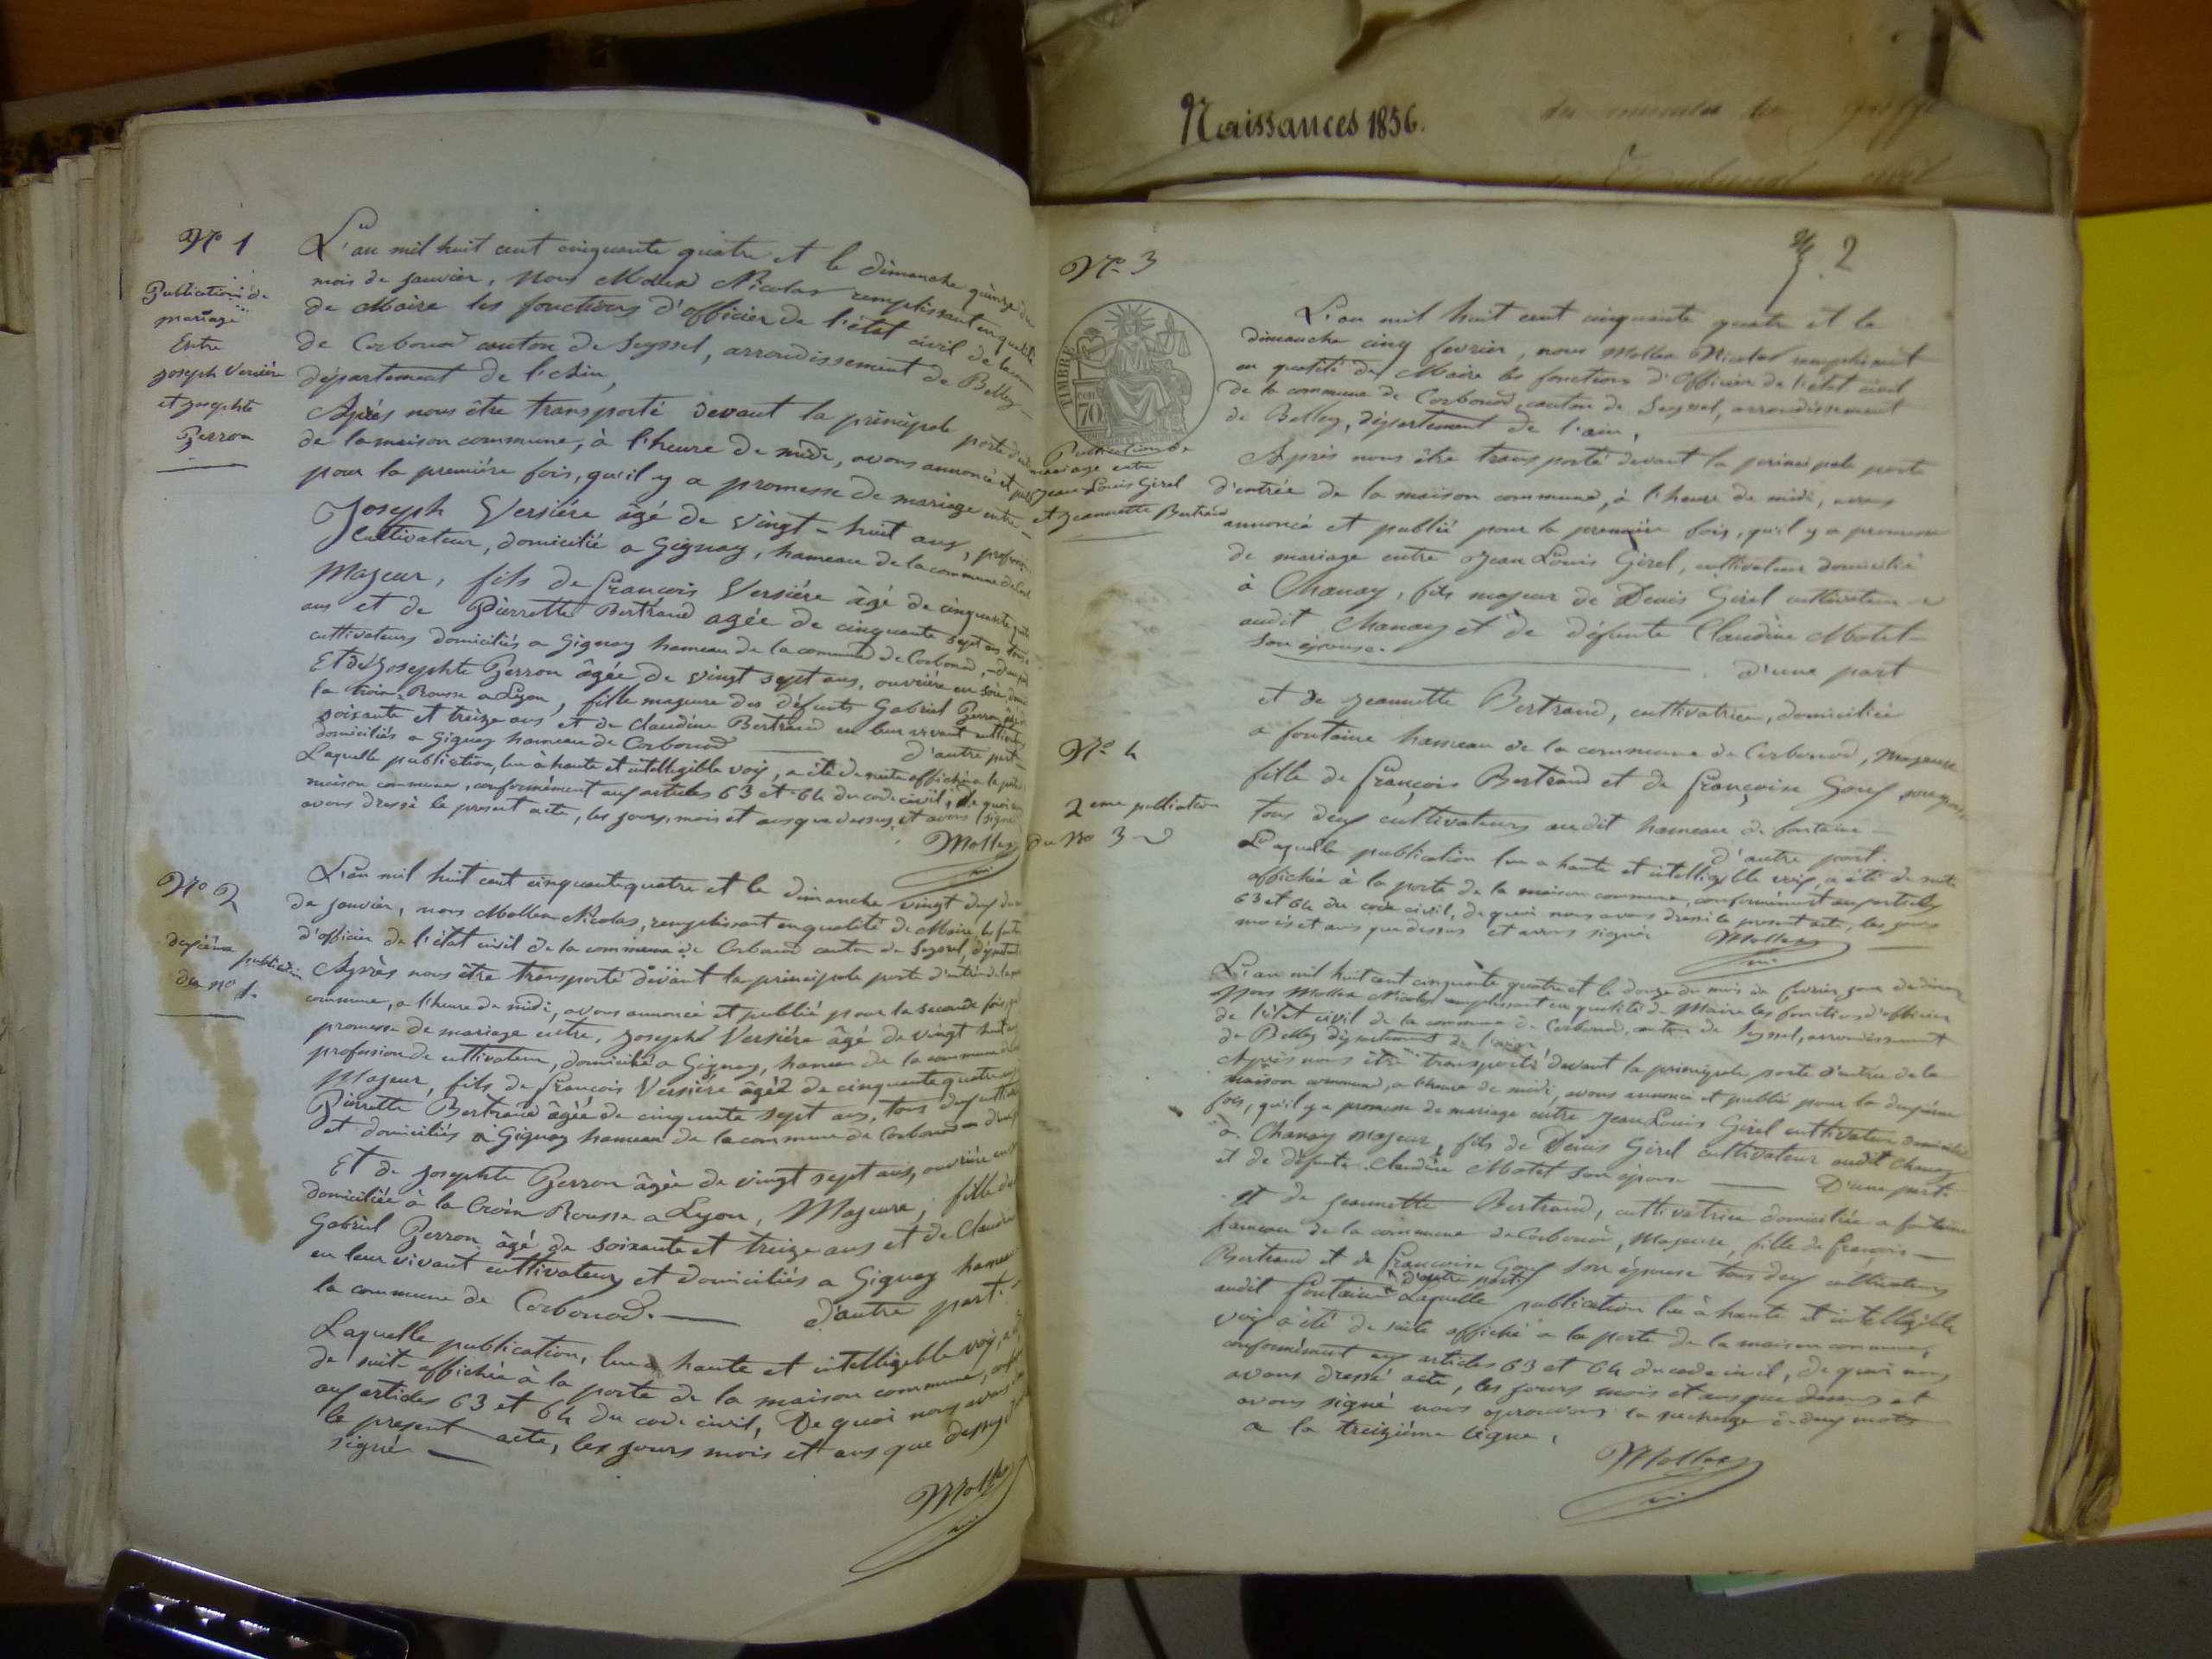 Naissances 1856.
Nº 1
Publication de
mariage
Entre
Joseph Versière
et Josephte
Perron
L'an mil huit cent cinquante quatre et le dimanche quinze du
mois de janvier, nous Mollex Nicolas remplissant en qualité
de Maire les fonctions d'officier de l'état civil de la
de Corbonod canton de Seyssel, arrondissement de Belley
département de l'Ain,
Après nous être transporté devant la principale porte
de la maison commune, à l'heure de midi, avons annoncé et
pour la première fois, qu'il y a promesse de mariage entre
Joseph Versière âgé de vingt-huit ans,
Cultivateur, domicilié a Gignay, hameau de la commune de
Majeur, fils de François Versière âgé de cinquante
ans et de Pierrette Bertrand agée de cinquante sept ans
cultivateurs domiciliés a Gignay hameau de la commune de Corbonod,
Et de Josephte Perron âgée de vingt sept ans, ouvrière en soie
la Croix-Rousse a Lyon, fille majeure des défunts Gabriel Perron
soixante et treize ans et de Claudine Bertrand en leur vivant
domiciliés a Gignay hameau de Corbonod
d'autre part
Laquelle publication, lue à haute et intelligible voix, a été de suite affichée a la
maison commune, conformément aux articles 63 et 64 du code civil, de quoi
avons dressé le present acte, les jours, mois et ans que dessus, et avons signé
Mollex
Nº 2
deuxième publication
du nº 1.
L'an mil huit cent cinquante quatre et le dimanche vingt deux
de janvier, nous Mollex Nicolas, remplissant en qualité de Maire les
d'officier de l'état civil de la commune de Corbonod canton de Seyssel,
Après nous être transporté devant la principale porte d'entrée de la
commune, a l'heure de midi, avons annoncé et publié pour la seconde fois
promesse de mariage entre, Joseph Versière âgé de vingt huit
profession de cultivateur, domicilié a Gignay, hameau de la commune
Majeur, fils de François Versière âgé de cinquante quatre
Pierrette Bertrand âgée de cinquante sept ans, tous deux
et domiciliés à Gignay hameau de la commune de Corbonod
Et de Josephte Perron âgée de vingt sept ans, ouvrière en
domiciliée à la Croix Rousse a Lyon, Majeure, fille
Gabriel Perron âgé de soixante et treize ans et de
en leur vivant cultivateurs et domiciliés a Gignay
la commune de Corbonod. d'autre part.
Laquelle publication, lue a haute et intelligible voix,
de suite affichée à la porte de la maison commune,
aux articles 63 et 64 du code civil, De quoi nous avons
le present acte, les jours mois et ans que dessus
signé
Mollex
2
Nº 3
TIMBRE
70
Publication de
mariage entre
Jean Louis Girel
et Jeannette Bertrand
L'an mil huit cent cinquante quatre et le
dimanche cinq fevrier, nous Mollex Nicolas remplissant
en qualité de Maire les fonctions d'Officier de l'état civil
de la commune de Corbonod, canton de Seyssel, arrondissement
de Belley, département de l'ain,
Après nous être transporté devant la principale porte
d'entrée de la maison commune, à l'heure de midi, avons
annoncé et publié pour la première fois, qu'il y a promesse
de mariage entre Jean Louis Girel, cultivateur domicilié
à Chanay, fils majeur de Denis Girel cultivateur
audit Chanay et de défunte Claudine Motet
son épouse.
d'une part
et de Jeannette Bertrand, cultivatrice, domiciliée
a fontaine hameau de la commune de Corbonod, Majeure
fille de François Bertrand et de Françoise Goux
tous deux cultivateurs audit hameau de fontaine
d'autre part.
Laquelle publication lue a haute et intelligible voix, a été de suite
affichée à la porte de la maison commune, conformément aux articles
63 et 64 du code civil, de quoi nous avons dressé le present acte, les jours
mois et ans que dessus et avons signé
Mollex
Nº 4
2eme publication
du No 3
L'an mil huit cent cinquante quatre et le douze du mois de fevrier jour de
Nous Mollex Nicolas remplissant en qualité de Maire les fonctions d'officier
de l'état civil de la commune de Corbonod, canton de Seyssel, arrondissement
de Belley département de l'ain
Après nous être transporté devant la principale porte d'entrée de la
maison commune, a l'heure de midi, avons annoncé et publié pour la deuxième
fois, qu'il y a promesse de mariage entre Jean Louis Girel cultivateur domicilié
à Chanay majeur, fils de Denis Girel cultivateur audit Chanay
et de défunte Claudine Motet son épouse D'une part.
et de Jeannette Bertrand, cultivatrice domiciliée a fontaine
hameau de la commune de Corbonod, Majeure, fille de françois
Bertrand et de Françoise Goux son épouse tous deux cultivateurs
d'autre part
audit fontaine Laquelle publication lue à haute et intelligible
voix a été de suite affiché a la porte de la maison commune,
conformément aux articles 63 et 64 du code civil, de quoi nous
avons dressé acte, les jours mois et ans que dessus et
avons signé nous approuvons la surcharge de deux mots
a la treizième ligne.
Mollex